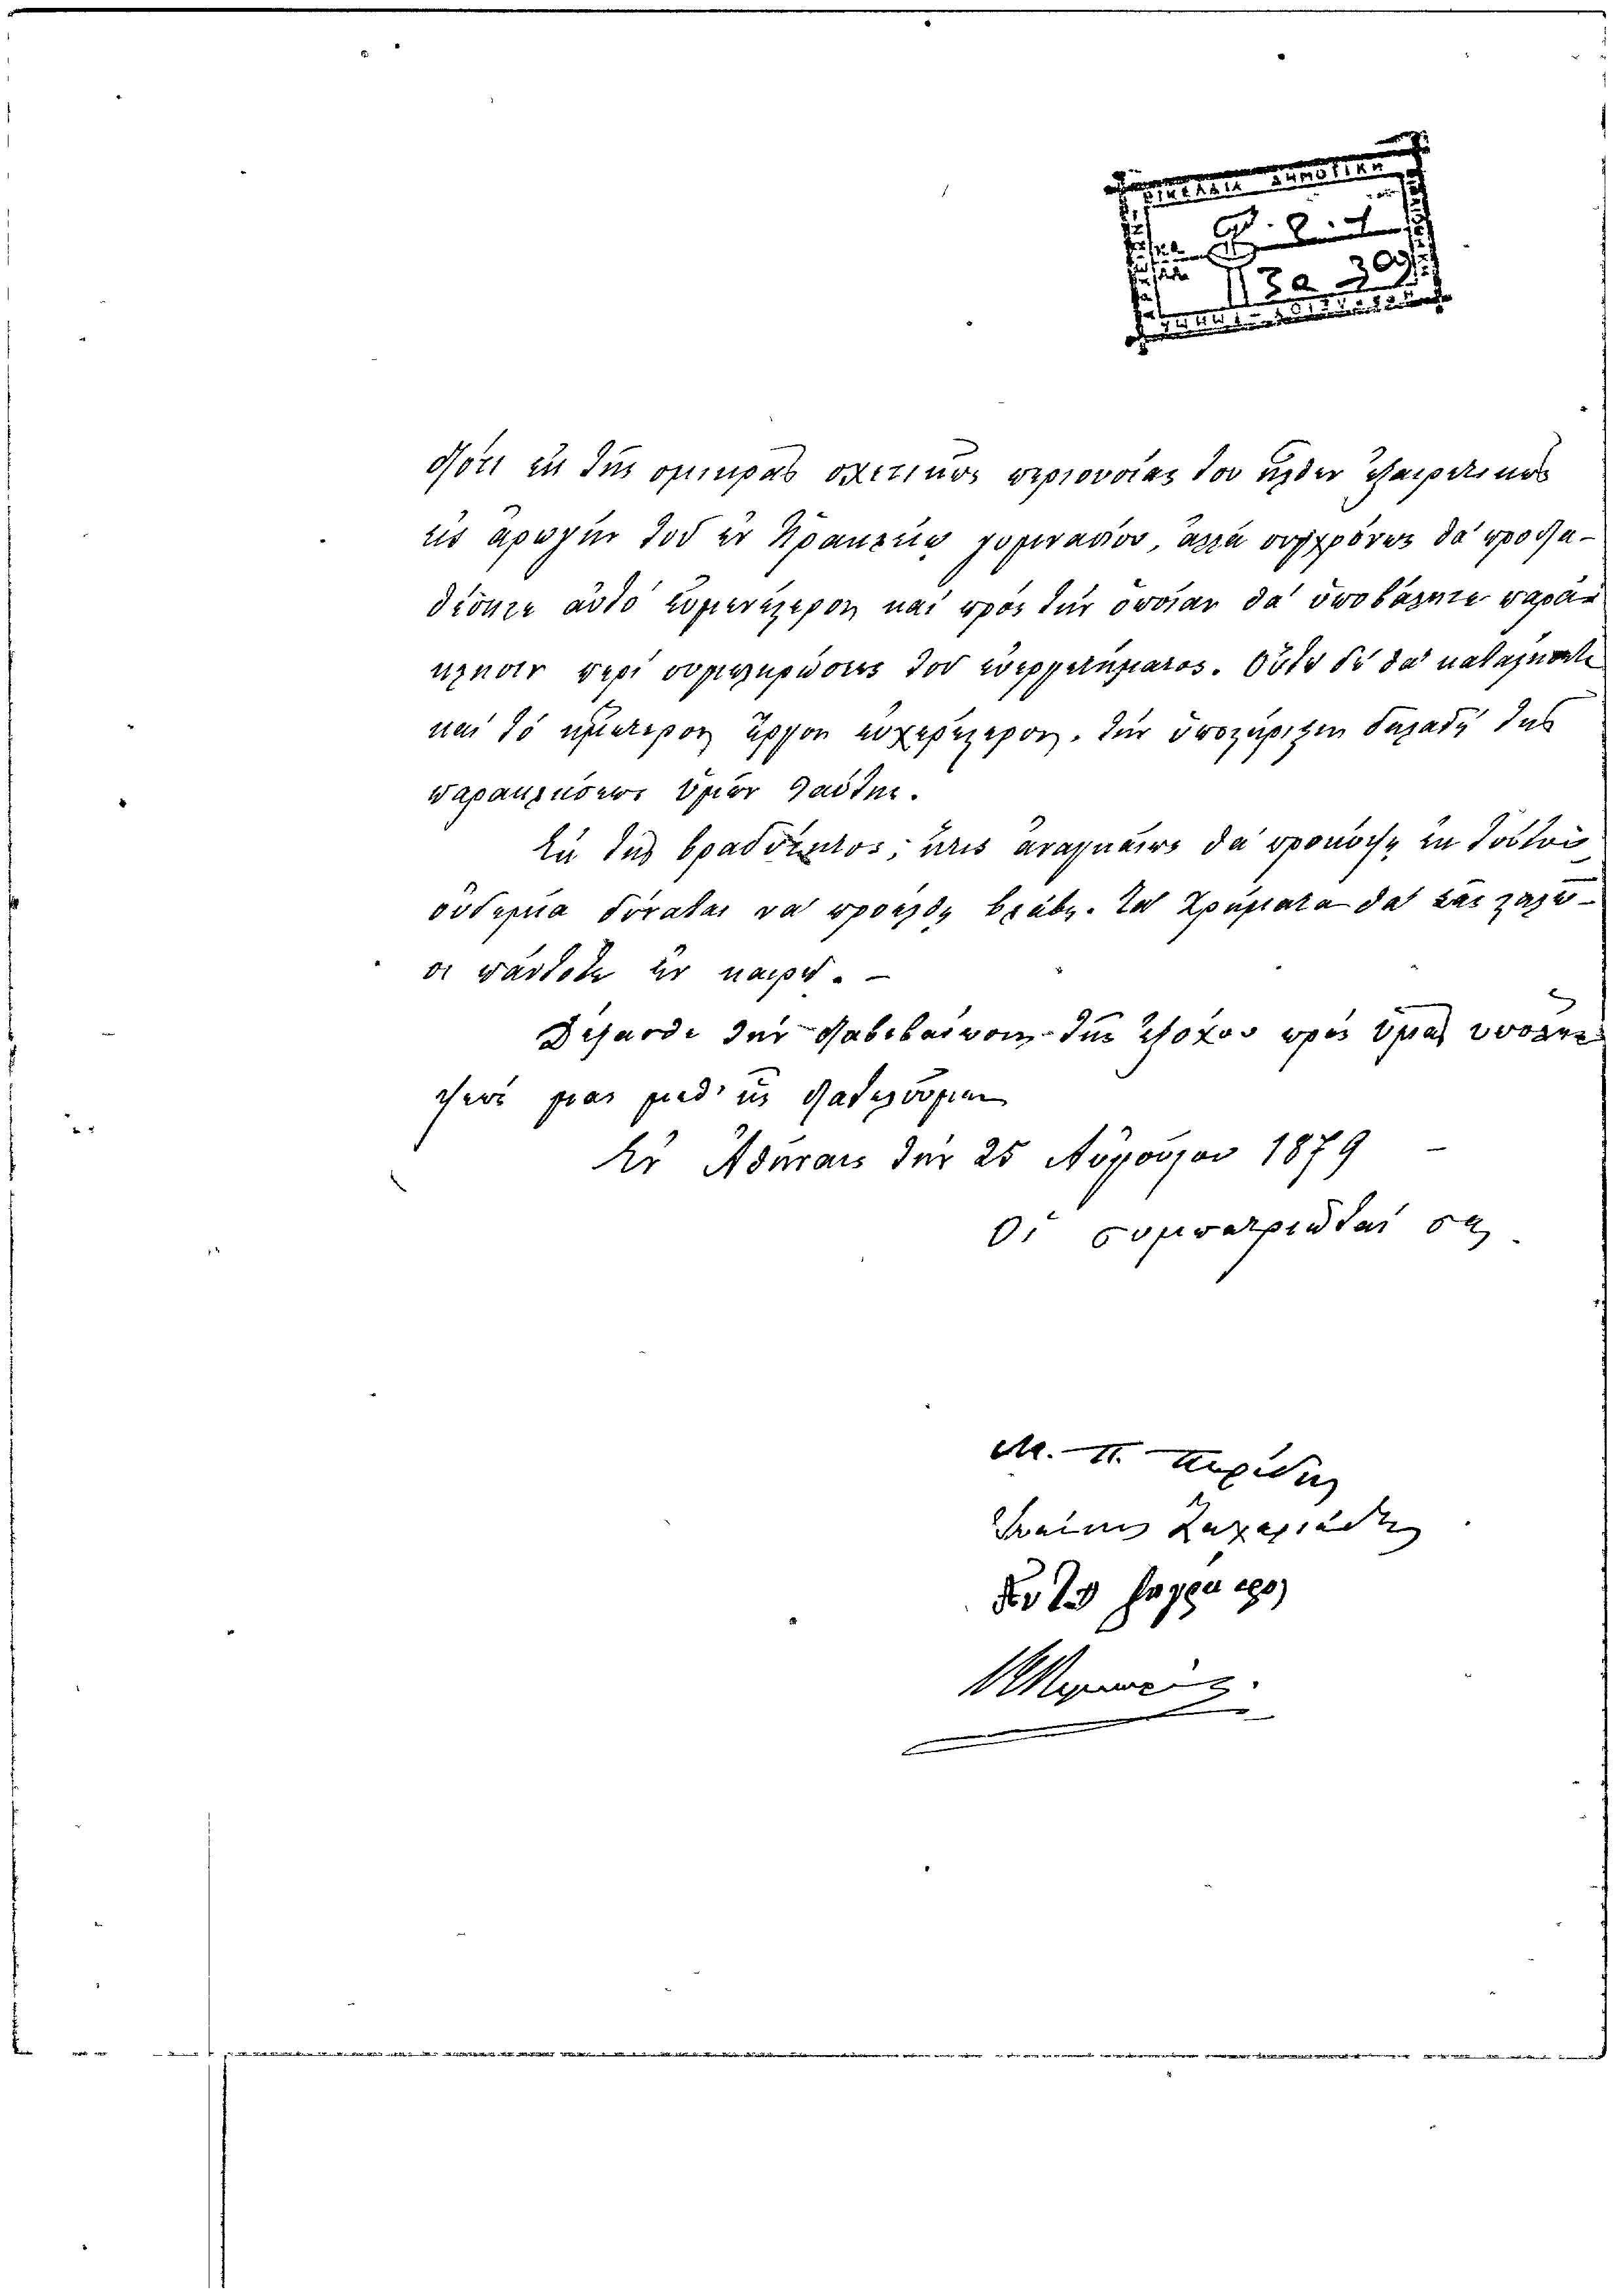 ΒΙΚΕΛΑΙΑ ΔΗΜΟΤΙΚΗ
διότι ἐκ τῆς σμικρᾶς σχετικῶς περιουσίας του ἦλθεν ἐξαιρετικῶς
εἰς ἀρωγὴν τοῦ ἐν Ἡρακλείῳ γυμνασίου, ἀλλὰ συγχρόνως θὰ προδια-
θέσητε αὐτὸ εὐμενέστερον καὶ πρὸς τὴν ὁποίαν θὰ ὑποβάλητε παρά-
κλησιν περὶ συμπληρώσεως τοῦ εὐεργετήματος. Οὕτω δὲ θὰ καταστήσητε
καὶ τὸ ἡμέτερον ἔργον εὐχερέστερον, τὴν ὑποστήριξιν δηλαδὴ τῆς
παρακλήσεως ὑμῶν ταύτης.
Ἐκ τῆς βραδύτητος, ἥτις ἀναγκαίως θὰ προκύψῃ ἐκ τούτου,
οὐδεμία δύναται νὰ προέλθῃ βλάβη. Τὰ χρήματα θὰ σᾶς σταλῶ-
σι πάντοτε ἐν καιρῷ. –
Δέξασθε τὴν διαβεβαίωσιν τῆς ἐξόχου πρὸς ὑμᾶς ὑπολή-
ψεώς μας μεθ' ἧς διατελοῦμεν
Ἐν Ἀθήναις τὴν 25 Αὐγούστου 1879 –
Οἱ συμπατριῶταί σας
Ζαχαριάδης